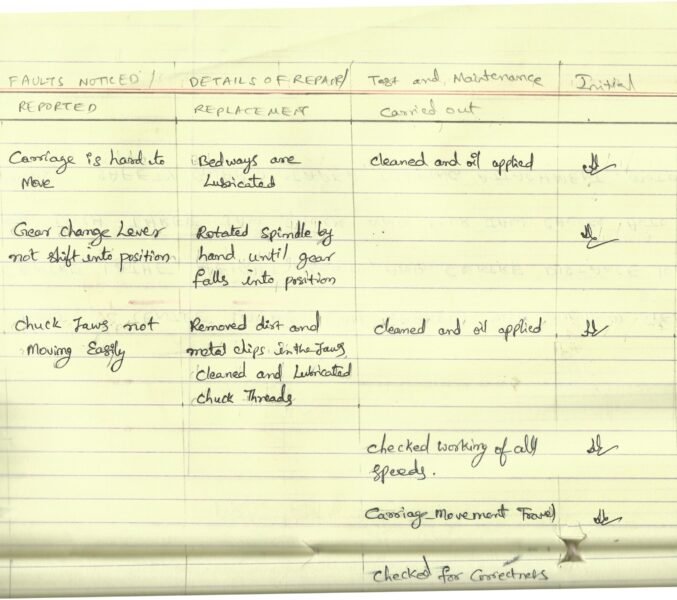 FAULTS NOTICED / DETAILS OF REPAIR/ Test and Maintenance Initial
REPORTED REPLACEMENT Carried out
Carriage is hard to Bedways are cleaned and oil applied
Move Lubricated
Gear change Lever Rotated Spindle by
not shift into position hand until gear
falls into position
Chuck Jaws not Removed dirt and cleaned and oil applied
Moving Easily metal chips in the Jaws
Cleaned and Lubricated
Chuck Threads
checked working of all
speeds.
Carriage Movement Travel
checked for correctness